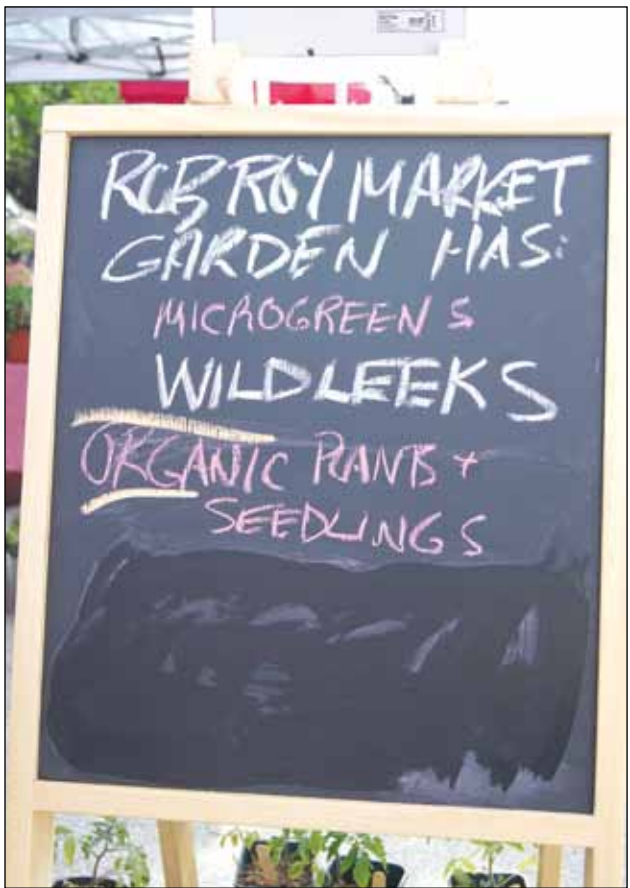 ROB ROY MARKET
GARDEN HAS:
MICROGREENS
WILD LEEKS
ORGANIC PLANTS +
SEEDLINGS